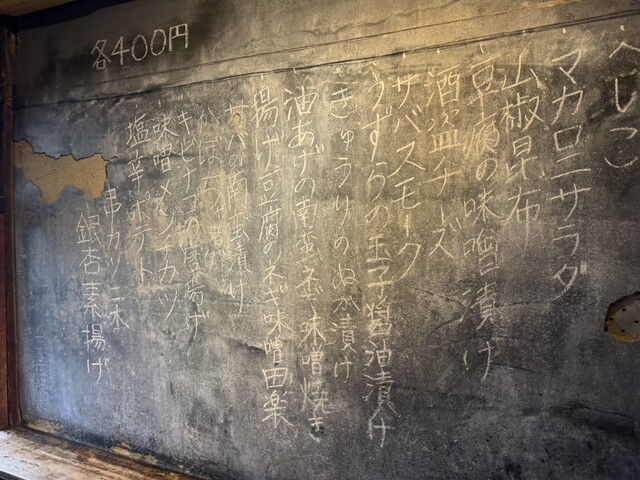 各400円
・へしこ
・マカロニサラダ
・山椒昆布
・豆腐の味噌漬け
・酒盗チーズ
・サバスモーク
・うずらの玉子醤油漬け
・きゅうりのぬか漬け
・油あげの南蛮ネギ味噌焼き
・揚げ豆腐のネギ味噌田楽
・サバの南蛮漬け
・かぼちゃの煮
・キビナゴの唐揚げ
・味噌メンチカツ
・塩辛ポテト
串カツ二本
銀杏素揚げ